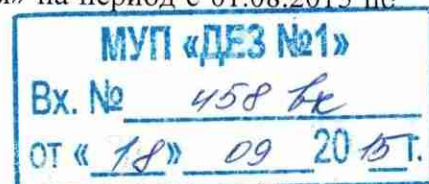 » на период с 01.08.2015 по
МУП «ДЕЗ №1»
Вх. № 458 вк
от « 18» 09 20 15 г.